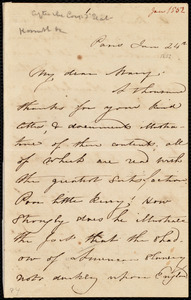 Jan / 1852
Paris Jan 24th
1852
My dear Mary,
A thousand
thanks for your kind
letter, & documents illustra-
tive of their content, all
of which are read with
the greatest satisfaction
Poor little Henry! How
strongly does he illustrate
the fact that the shad-
ow of American slavery
rests darkly upon England